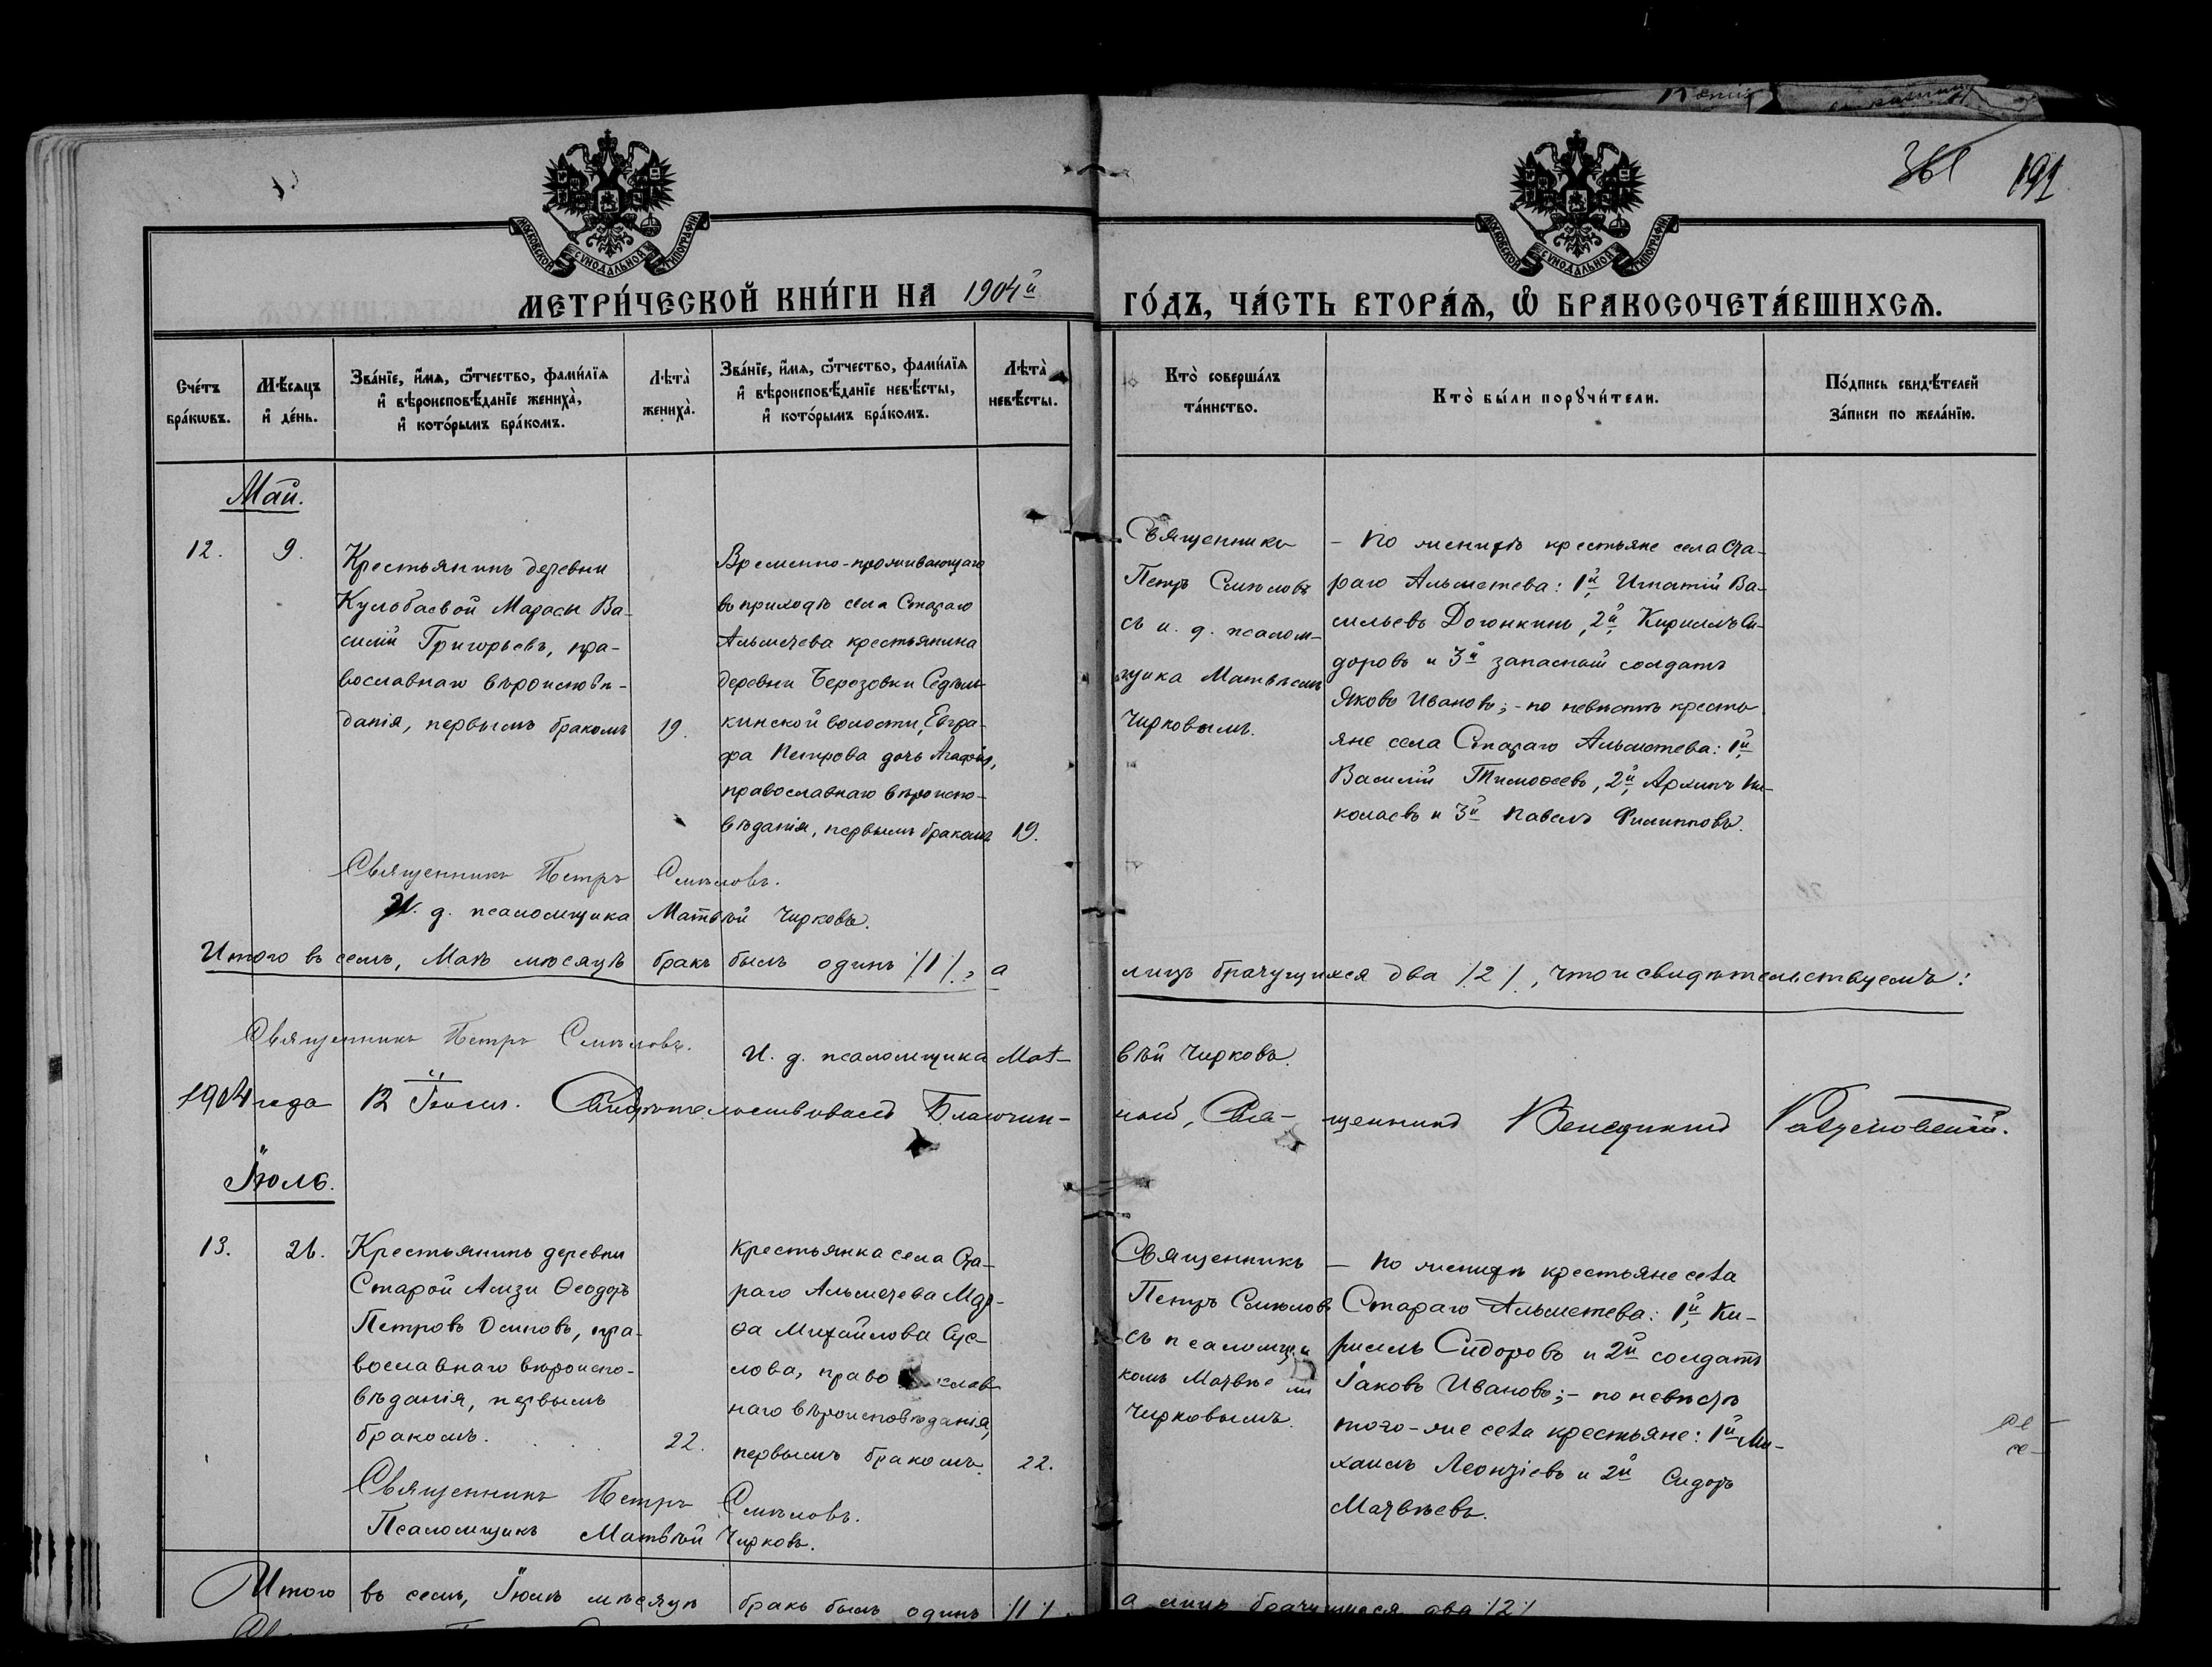 361 191
МОСКОВСКОЙ СѴНОДАЛЬНОЙ ТИПОГРАФІИ
МОСКОВСКОЙ СѴНОДАЛЬНОЙ ТИПОГРАФІИ
МЕТРИ́ЧЕСКОЙ КНИ́ГИ НА 1904й ГО́ДЪ, ЧА́СТЬ ВТОРА́Я, Ѽ БРАКОСОЧЕТА́ВШИХСѦ.
Сче́тъ
бра́кѡвъ.
Мѣ́сяцъ
и҆ де́нь.
Зва́нїе, и҆́мя, ѻ҆́тчество, фамі́лїя
и҆ вѣроисповѣ́данїе жениха̀,
и҆ кото́рымъ бра́комъ.
Лѣта̀
жениха̀.
Зва́нїе, и҆́мя, ѻ҆́тчество, фамі́лїя
и҆ вѣроисповѣ́данїе невѣ́сты,
и҆ кото́рымъ бра́комъ.
Лѣта̀
невѣ́сты.
Кто̀ соверша́лъ
та́инство.
Кто̀ бы́ли порꙋчи́тели.
По́дпись свидѣ́телей
за́писи по жела́нїю.
Май.
12.
9.
Крестьянинъ деревни
Кульбаевой Марасы Ва-
силій Григорьевъ, пра-
вославнаго вѣроисповѣ-
данія, первымъ бракомъ
19.
Временно-проживающаго
въ приходѣ села Стараго
Альметева крестьянина
деревни Березовки
кинской волости, Евгра-
фа Петрова дочь Агафія,
православнаго вѣроиспо-
вѣданія, первымъ бракомъ
19.
Священникъ
Петръ Смѣловъ
съ и. д. псалом-
щика Матвѣемъ
Чирковымъ.
- по женихѣ крестьяне села Ста-
раго Альметева: 1й, Игнатій Ва-
сильевъ Догонкинъ, 2й, Кириллъ Си-
доровъ и 3й запасный солдатъ
Яковъ Ивановъ; - по невѣстѣ кресть-
яне села Стараго Альметева: 1й,
Василій Тимоѳеевъ, 2й, Архипъ Ни-
колаевъ и 3й Павелъ Филипповъ.
Священникъ Петръ Смѣловъ.
И. д. псаломщика Матвѣй Чирковъ.
Итого въ семъ, Маѣ мѣсяцѣ бракъ былъ одинъ /1/., а лицъ брачущихся два /2/., что и свидѣтельствуемъ:
Священникъ Петръ Смѣловъ. И. д. псаломщика Мат- вѣй Чирковъ.
1904 года 12 Іюля. Свидѣтельствовалъ Благочин- ный, Свя- щенникъ Венедиктъ
Іюль.
13.
21.
Крестьянинъ деревни
Старой Амзи Ѳеодоръ
Петровъ Осиповъ, пра-
вославнаго вѣроиспо-
вѣданія, первымъ
бракомъ.
22.
Крестьянка села Ста-
раго Альметева Мар-
ѳа Михайлова Сус-
лова, православ-
наго вѣроисповѣданія,
первымъ бракомъ.
22.
Священникъ
Петръ Смѣловъ
съ псаломщи-
комъ Матвѣемъ
Чирковымъ.
- по женихѣ крестьяне села
Стараго Альметева: 1й, Ки-
риллъ Сидоровъ и 2й солдатъ
Іаковъ Ивановъ; - по невѣстѣ
того-же села крестьяне: 1й Ми-
хаилъ Леонтіевъ и 2й Сидоръ
Матвѣевъ.
Священникъ Петръ Смѣловъ.
Псаломщикъ Матвѣй Чирковъ.
Итого въ семъ, Іюлѣ мѣсяцѣ бракъ былъ одинъ /1/., а лицъ брачущихся два /2/